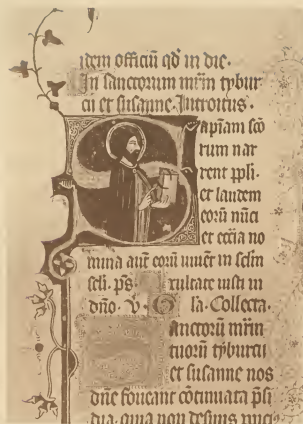 idem officiū qđ in die.
In sanctorum mr̄m tybur
cii et susanne. Introitus.
Sapīam sc̄o
rum nar
rent ppl̄i.
et laudem
eorū nūci
et ecc̄ia no
mina aūt eorū uiuēt in sclm̄
scl̄i. ps̄. Exultate iusti in
dño. V̄. Gl̄a. Collecta.
Sanctorū mr̄m
tuorū tyburcii
et susanne nos
dn̄e foueant cōtinuata p̄si
dia. quia non desinis